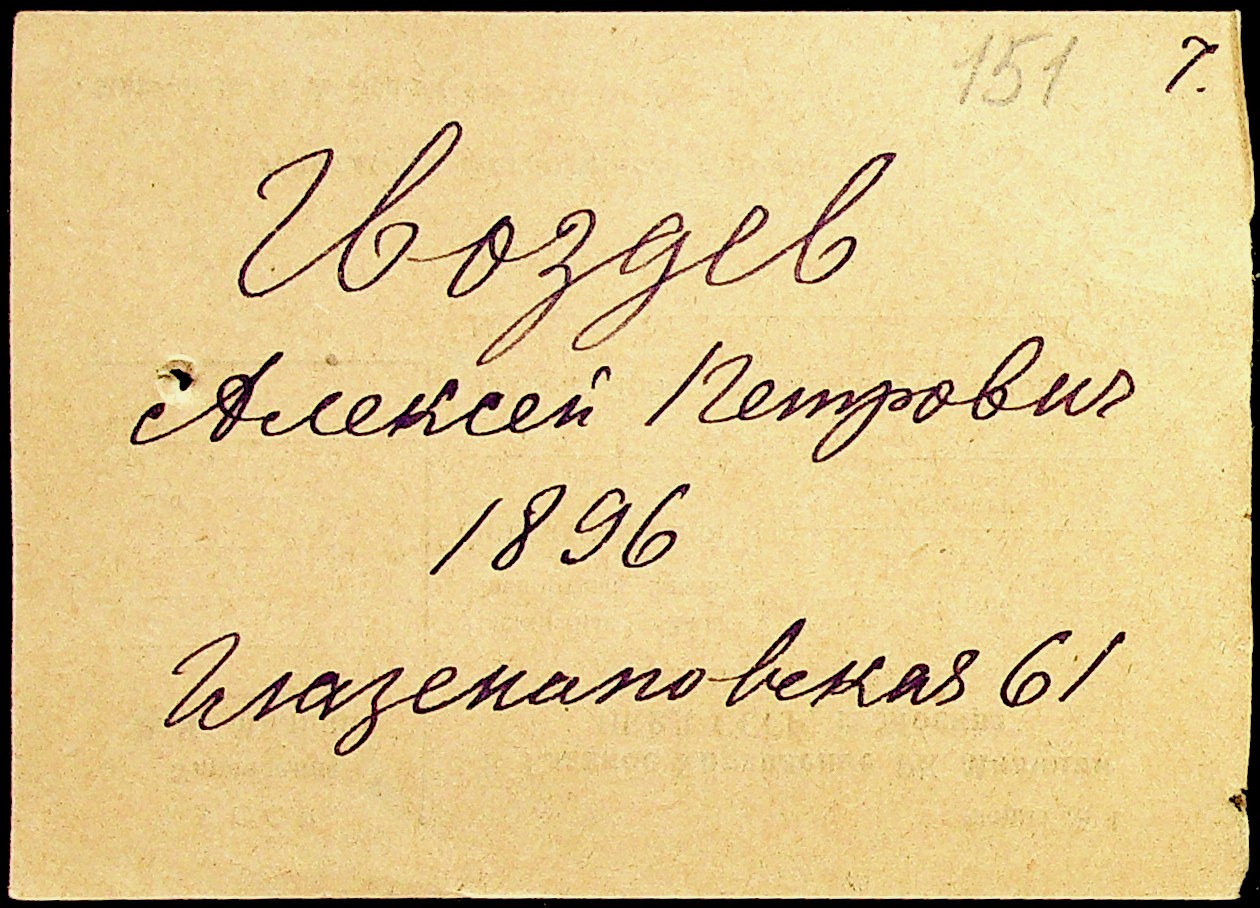 151 7.
Гвоздев
Алексей Петрович
1896
Глазенаповская 61